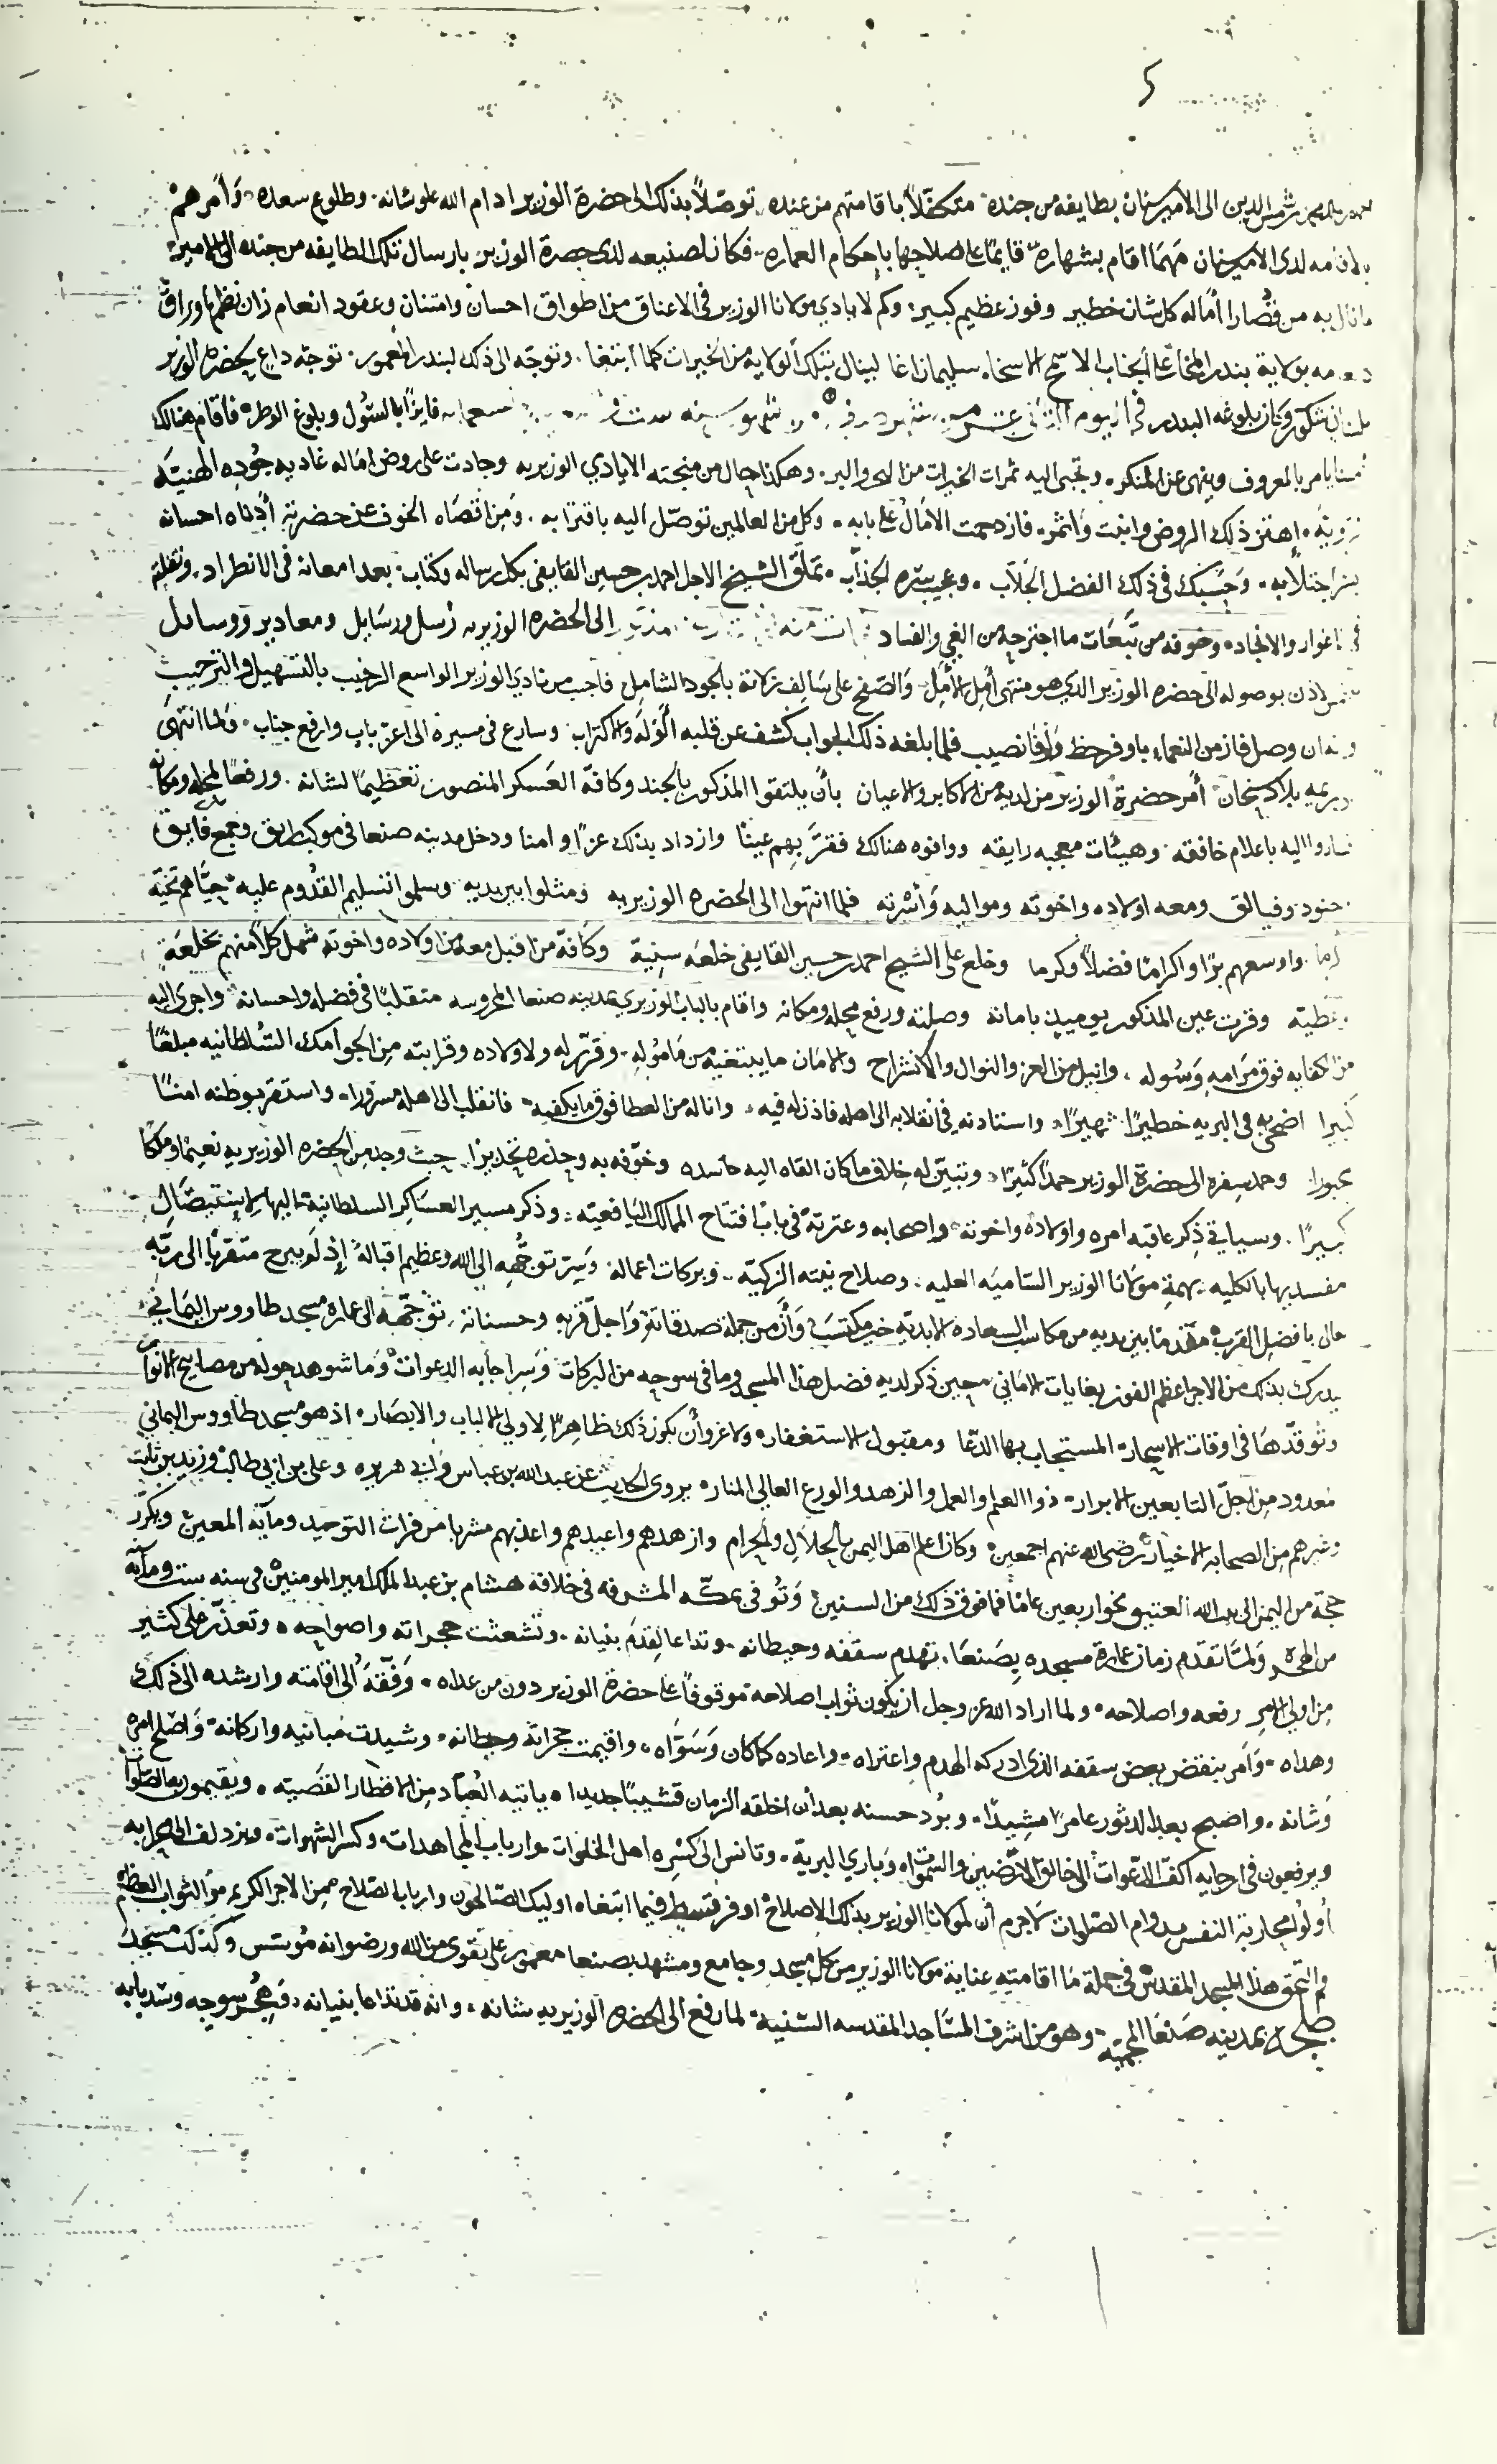 شمس الدين الى الامير سنان بطايفه من جنده متكفلًا باقامتهم من عنده توصّلاً بذلك الى حضرة الوزير ادام الله علو شانه وطلوع سعده وَأمرهم
لدى الامير سنان مَهمَا اقام بشهاره قايمًا على اصلاحها باحكام العماره فكان لصنيعه لدى حضرة الوزير بارسال تلك الطايفه من جنده الى الامير
من قُصارا أماله كل شان خطير وفوز عظيم كبير وكم لايادي مولانا الوزير في الاعناق من اطواق احسان وامتنان وعقود انعام زان نظمها وراق
بولاية بندر المخا على الجناب الاسمح الاسخا سليمان اغا لينال بتلك الولايه من الخيرات كلما ابتغا وتوجّه الى ذلك البندر المعمور توجّه داع بحضرة الوزير
بلسان شكور وكان بلوغه البندر في اليوم الثاني عشر فايزًا بالسئول وبلوغ الوطر فاقام هنالك
يامر بالمعروف وينهى عن المنكر وتجبى اليه ثمرات الخيرات من البحر والبر وهكذا حال من منحته الايادي الوزيريه وجادت على روض اماله غاديه جُوده الهنيّه
اهتز ذلك الروض وانبت وَاثمر فازدحمت الامَالُ على بابه وكل من العالمين توصّل اليه باقترابه ومَن اقصَاه الخوف عن حضرته أدناه احسانه
وَحَسبك في ذلك الفضل الجلاّب وعجيب سره الجذّاب تملّق الشيخ الاجل احمد بن حسين القايفي بكل رساله وكتاب بعد امعانه في الانطراد وتقلبه
في الاغوار والانجاد وخوفه من تبَعَات ما اجترحه من الغي والفساد الى الحضره الوزيريه رُسل ورسَايل ومعاذير ووسايل
بوصوله الى حضره الوزير الذي هو منتهى أمل الأمل وَالصّفح على سَالف زلاته بالجود الشامل فاجيب من نادي الوزير الواسع الرحيب بالتسهيل والترحيب
ان وصل فاز من النعماء باوفر حظ وَأوفا نصيب فلما بلغه ذلك الجواب كشف عن قلبه الوَلَه والاكتراب وسارع في مسيره الى اعز باب وارفع جناب ولما انتهى
بلاد سنحان أمر حضرة الوزير من لديه من الاكابر والاعيان بأن يلتقوا المذكور بالجند وكافة العَسكر المنصور تعظيمًا لشانه ورفعًا لمحله ومكانه
فساروا اليه باعلام خافقه وهيئات معجبه رايقه ووافوه هنالك فقرَّ بهم عينًا وازداد بذلك عزًا وامنا ودخل مدينه صنعا في موكب رايق وجمع فايق
جنود وفيالق ومعه اولاده واخوته ومواليه وَأسرته فلما انتهوا الى الحضره الوزيريه ومثلوا بين يديه وسلموا تسليم القُدوم عليه حيَّاهم تحيّة
واوسعهم برًّا واكرامًا فضلًا وكرما وخلع على الشيخ احمد بن حسين القايفي خلعه سنيّة وكافّة من اقبل معه من اولاده واخوته شمل كلًا منهم بخلعة
وعطيّه وقرت عين المذكور يوميذ بامانه وصلته ورفع محله ومكانه واقام بالباب الوزيري بمدينه صنعا المحروسه متقلبًا في فضله واحسانه واجرى اليه
من الكفايه فوق مَرامه وَسُوله وانيل من العز والنوال والانشراح والامَان ما يبتغيه من مَامُوله وقرّر له ولاولاده وقرابته من الجوامك السُلطانيه مبلغًا
كبيرا اضحى به في البريه خطيرًا شهيرًا واستاذنه في انقلابه الى اهله فاذن له فيه واناله من العطا فوق ما يكفيه فانقلب الى اهله مسرورا واستقر بوطنه امنًا
محبورا وحمد سفره الى حضرة الوزير حمدًا كثيرًا وتبيّن له خلاف ما كان القاه اليه حاسده وخوّفه به وحذره تحذيرًا حيث وجد من الحضره الوزيريه نعيمًا وملكًا
كبيرًا وسياتي ذكر عاقبه امره واولاده واخوته وَاصحابه وعترته في باب افتتاح الممالك اليافعيّه وذكر مسير العسَاكر السلطانية اليها لاستيصَال
مفسديها بالكليه بهمة مولانا الوزير السّاميه العليه وصلاح نيته الزكيّه وبركات اعماله وَسِرّ توجُّهه الى الله وعظيم اقباله إذ لَم يبرح متقربًا الى ربّه
بافضل القرب مقدمًا بين يديه من مكاسب السعاده الابديه خير مكتسَب وَأن من جملة صدقاته وَاجلّ قربه وحسناته توجّهه الى عماره مسجد طاووس اليماني
يدرك بذلك من الاجر اعظم الفوز بغايات الامَاني حين ذكر لديه فضل هذا المسجد وما في سوحه من البركات وَسر اجابه الدعوات وَما شوهد حوله من مصابيح الانوار
وتُوقدّها في اوقات الاسحار المستجاب بها الدعَا ومقبول الاستغفار ولا غرو أن يكون ذلك ظاهرًا لاولي الالباب والابصَار اذ هو مسجد طاووس اليماني
مَعدود من اجلّ التابعين الابرار ذوا العلم والعمل والزهد والورع العالي المنار يروى الحديث عن عبد الله بن عباس وابي هريره وعلي بن ابي طالب وزيد بن ثابت
وغيرهم من الصحابه الاخيار رضى الله عنهم اجمعين وكان اعلم اهل اليمن بالحلال والحرام وازهدهم واعبدهم واعذبهم مشربا من فرات التوحيد ومآيه المعين وتكرّر
حجّه من اليمن الى بيت الله العتيق نحوا ربعين عامًا فما فوق ذلك من السنين وَتُوفى بمكّه المشرفه في خلافة هشام بن عبد الملك امير المومنين في سنه ست ومآيه
من الهجره وَلمّا تقدّم زمان عمارة مسجده بصَنعَا تهدم سقفه وحيطانه وتداعا لقدَم بنيانه وتشعثت حجراته واصواحه وتعذّر على كثير
من اولي الامر رفعه واصلاحه ولما اراد الله عز وجل ان يكون ثواب اصلاحه موقوفًا على حضرة الوزير دون من عداه وَفّقهُ الى اقامته وارشده الى ذلك
وهداه وَأمر بنقض بعض سقفه الذي ادركه الهدم واعتراه واعاده كما كان وَسَوّاه واقيمت حجراته وحيطانه وشيدت مَبانيه واركانه وَاصلح امره
وَشانه واصبح بعد الدثور عامرًا مشيدًا وبُرد حسنه بعد أن اخلقه الزمان قشيبًا جديدا ياتيه العُبّاد من الاقطار القَصيّه ويقيمون به الصلوات
ويرفعون في ارجايه اكفّ الدّعوات الى خالق الارَضين والسّموات وَباري البريّه وتانس الى كَسْره اهل الخلوات وارباب المجاهدات وكسر الشهوات ويزدلف الى محرابه
أولُوا محاربة النفس بدوام الصّلوات لاَجرم أن لمولانا الوزير بذلك الاصلاح اوفر قسط فيما ابتغاه اوليك الصّالحون وارباب الصّلاح من الاجر الكريم والثواب العظيم
والتحق هذا المسجد المقدس في جملة مَا اقامته عِناية مَولانا الوزير من كل مسجد وجامع ومشهد بصنعا معمور على تقوى من الله ورضوانه مُوسّس وكذلك مسجدُ
بمدينه صَنعَا المحميّه وهو من اشرف المسَاجد المقدسه السّنيّة لما رفع الى الحضره الوزيريه شانه وانه قد تداعا بنيانه وَهُجر سوحه وسُد بابه